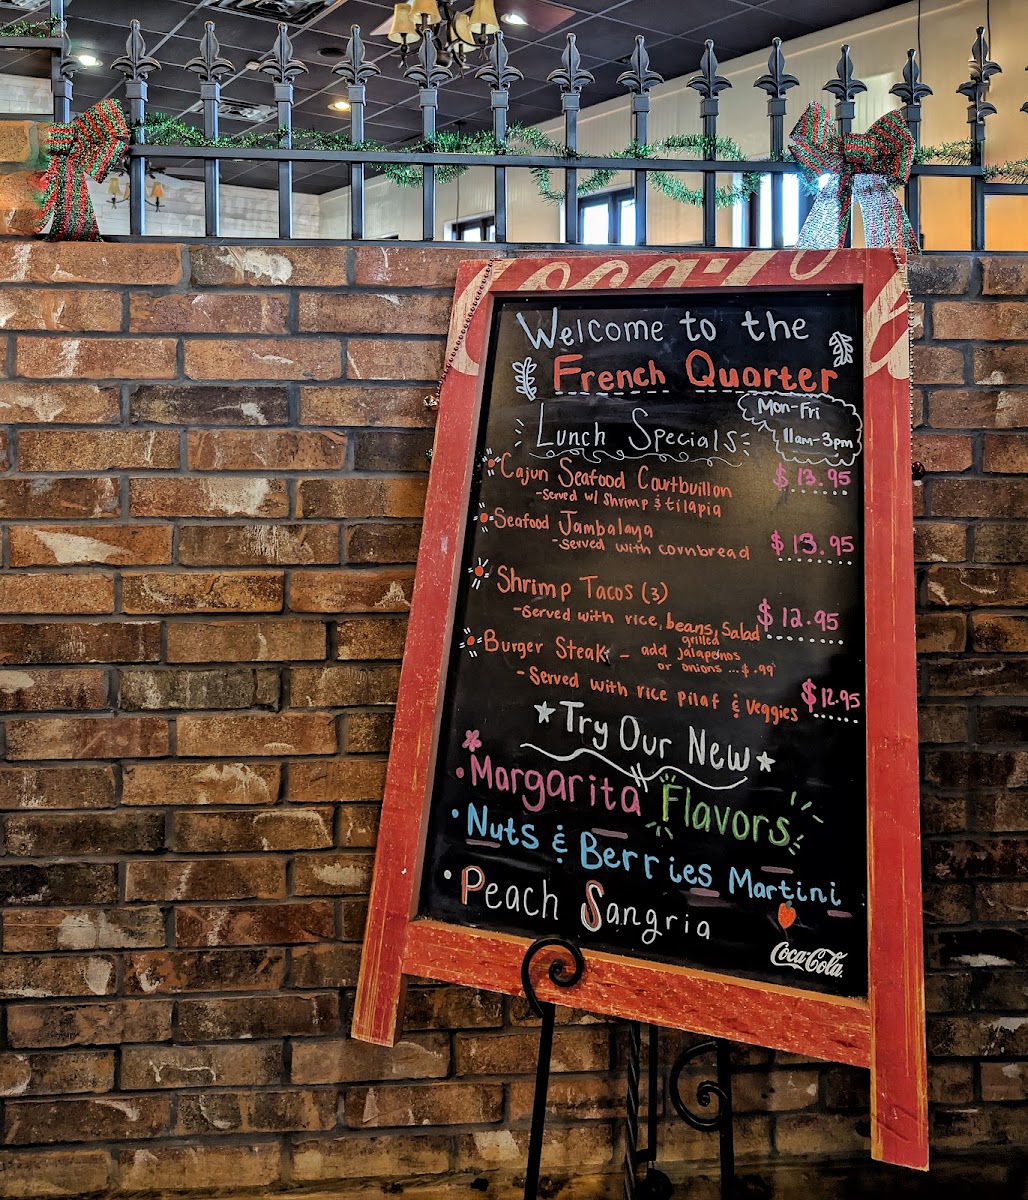 Coca-Cola
Welcome to the
French Quarter
Mon-Fri
11am-3pm
Lunch Specials
Cajun Seafood Courtbuillon $13.95
-Served w/ Shrimp & tilapia
Seafood Jambalaya
-Served with cornbread $13.95
Shrimp Tacos (3)
-Served with rice, beans, Salad $12.95
Burger Steak - add grilled jalapenos
or onions ...$.99
-Served with rice pilaf & veggies $12.95
Try Our New
Margarita Flavors
Nuts & Berries Martini
Peach Sangria
Coca-Cola